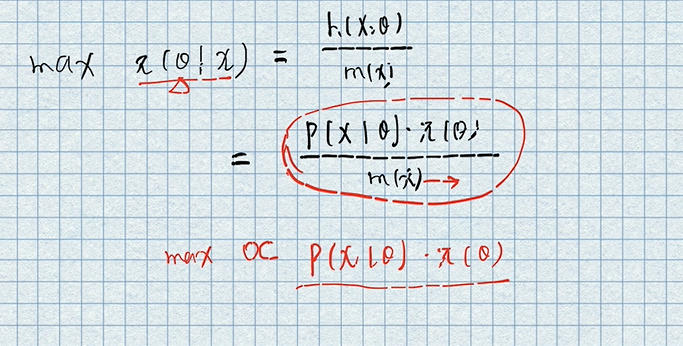 max π(θ|x) = h(x,θ) / m(x)
= p(x|θ)·π(θ) / m(x) →
max ∝ p(x|θ)·π(θ)